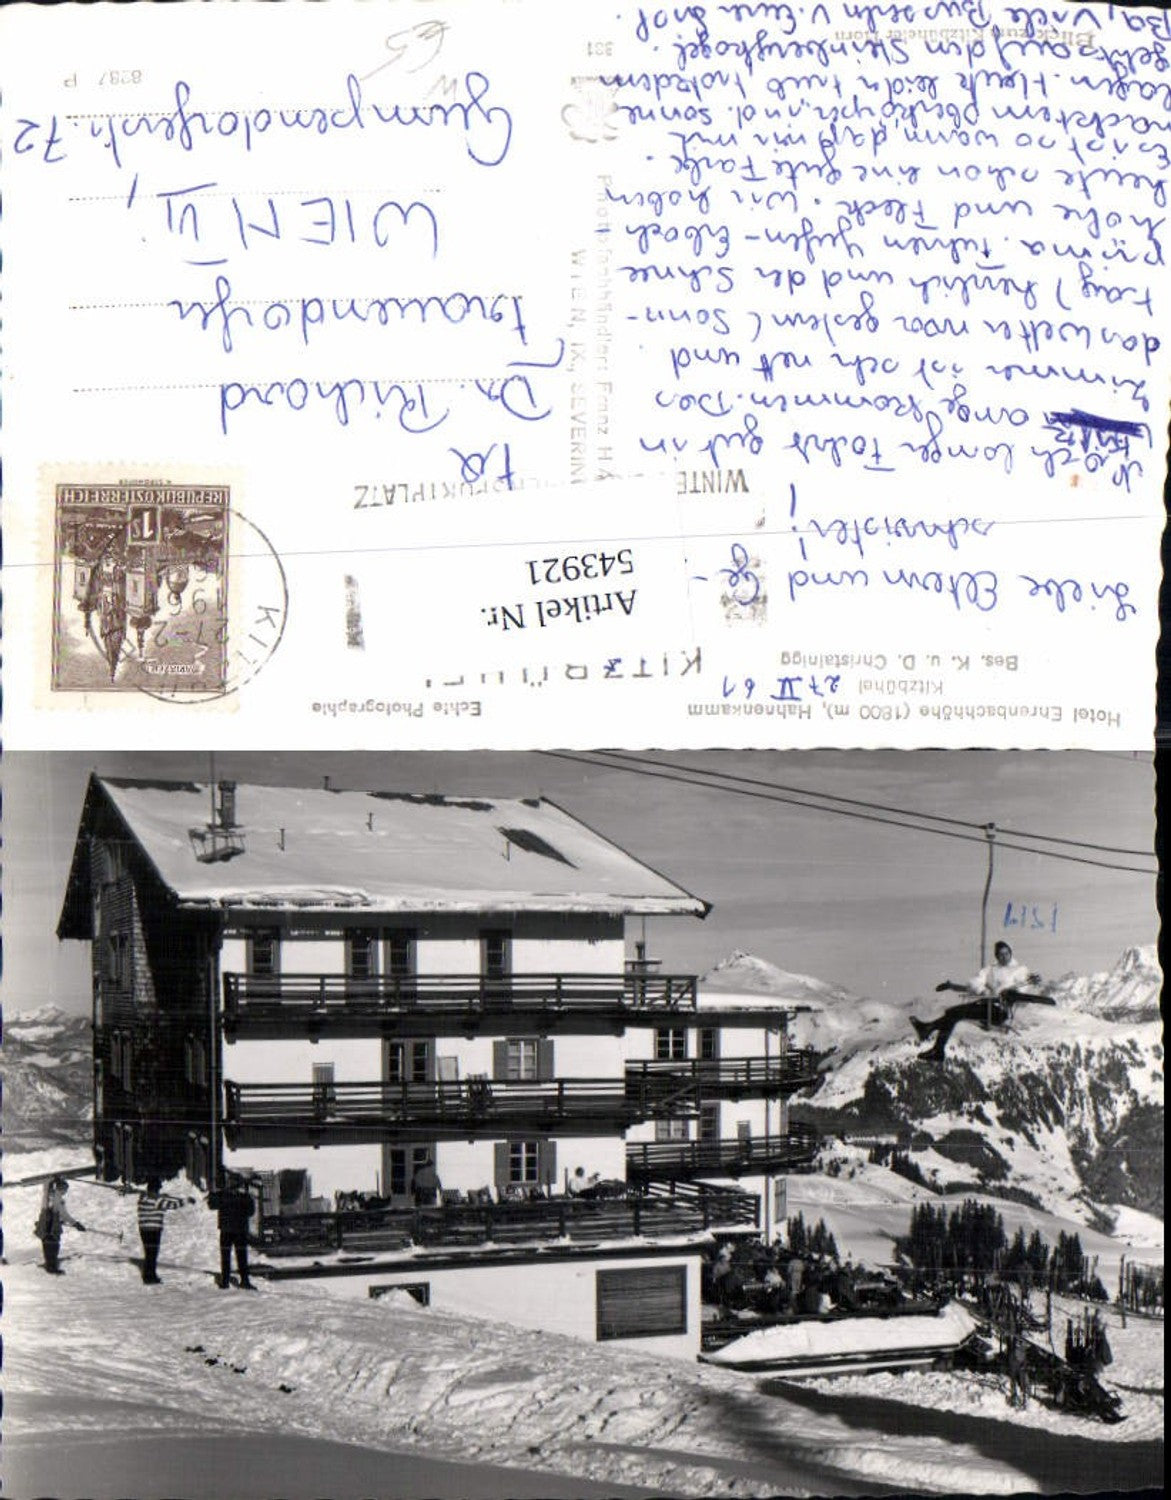 Hotel Ehrenbachhöhe (1800 m), Hahnenkamm
Kitzbühel 27 II 61
Bes. K. u. D. Christainigg
Echte Photographie
KITZBÜHEL
27-2
Liebe Eltern und Ge-
schwister!
Nach langer Fahrt gut in
Kitz angekommen. Das
Zimmer ist sehr nett und
das Wetter war gestern (Sonn-
tag) herrlich und der Schnee
prima. Fuhren Jufen-Erbach
höhe und Fleck. Wir haben
heute schon eine gute Farbe.
Es ist so warm, daß wir mit
nacktem Oberkörper in d. Sonne
lagen. Heute leider trüb trotzdem
geht's auf den Steinbergkogel.
Ba, Viele Busserln v. Eure
Blick zum Kitzbüheler Horn
Artikel Nr.
543921
WINTE
PLATZ
REPUBLIK ÖSTERREICH
1 S
MARIAZELL
Fa
Dr. Richard
Frauendorfer
WIEN VI,
Gumpendorferstr. 72
Franz HA
WIEN, IX., SEVERIN
331
8287 P
€5